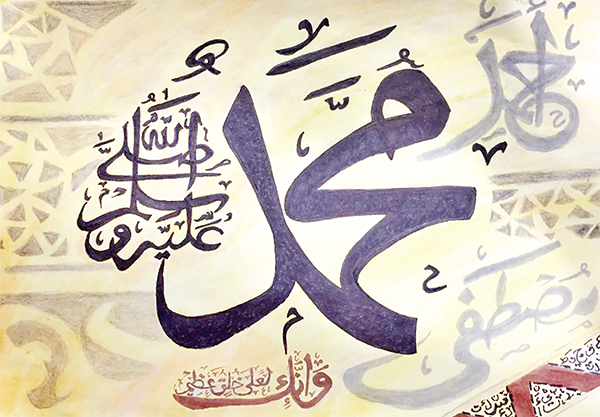 محمد
صلى الله عليه وسلم
أحمد
مصطفى
وَإِنَّكَ لعلى خلق عظيم